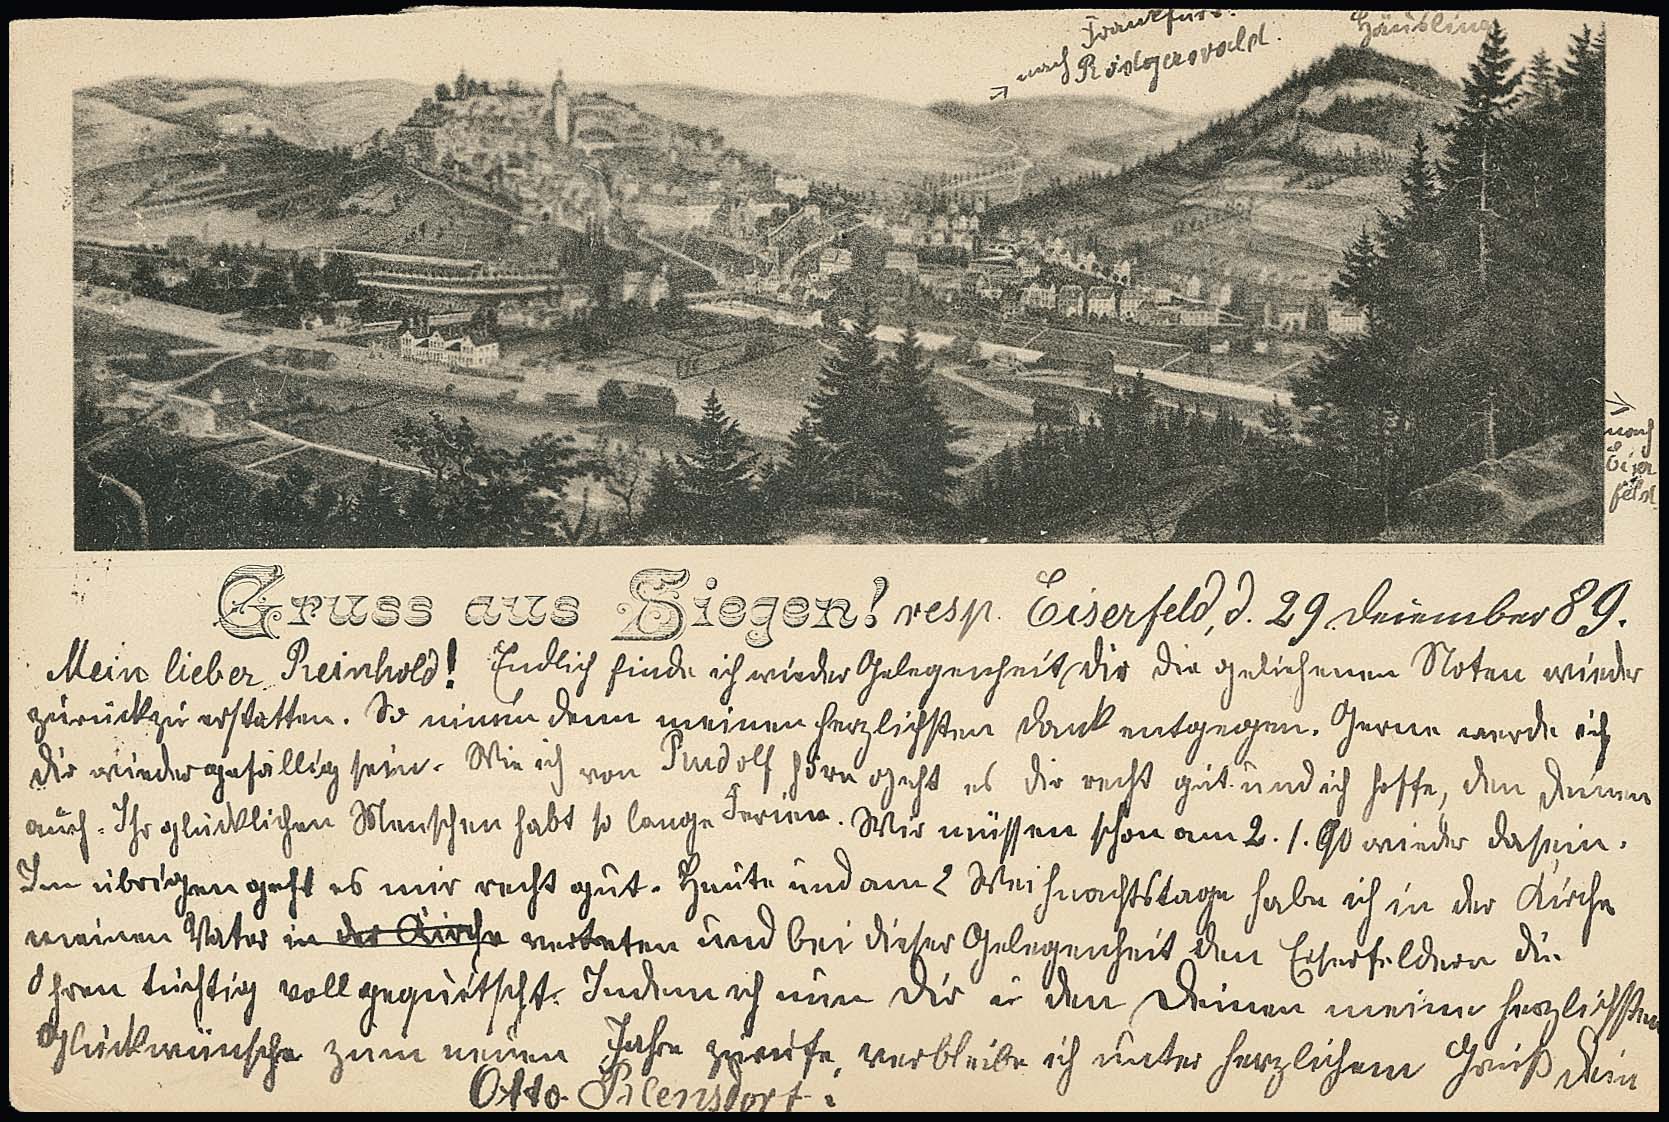 Frankfurt.
nach Rödgerwald.
Häusling
nach
Eiser
feld.
Gruss aus Siegen! resp. Eiserfeld, d. 29 Dezember 89.
Mein lieber Reinhold! Endlich finde ich wieder Gelegenheit, Dir die geliehenen Noten wieder
zurückzuerstatten. So nimm denn meinen herzlichsten Dank entgegen. Gerne werde ich
Dir wieder gefällig sein. Wie ich von Rudolf höre geht es Dir recht gut und ich hoffe, den Deinen
auch. Ihr glücklichen Menschen habt so lange Ferien. Wir müssen schon am 2. 1. 90 wieder da sein.
Im übrigen geht es mir recht gut. Heute und am 2 Weihnachtstage habe ich in der Kirche
meinen Vater in der Kirche vertreten und bei dieser Gelegenheit den Eiserfeldern die
Ohren tüchtig voll gequietscht. Indem ich nun Dir u den Deinen meine herzlichsten
Glückwünsche zum neuen Jahre zurufe, verbleibe ich unter herzlichem Gruß Dein
Otto